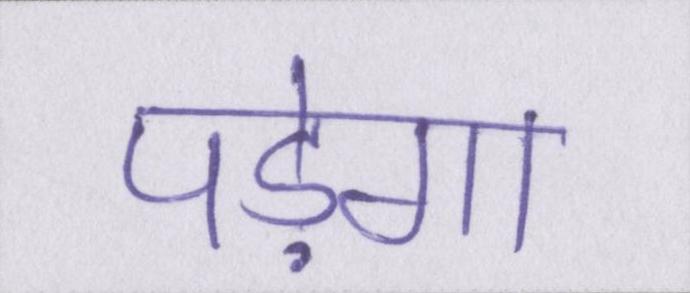 पड़ेगा